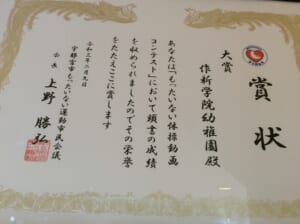 賞状
大賞
作新学院幼稚園殿
あなたは「もったいない体操動画
コンテスト」において頭書の成績
を収められましたのでその栄誉
をたたえここに賞します
令和三年二月九日
宇都宮市もったいない運動市民会議
会長 上野 勝弘